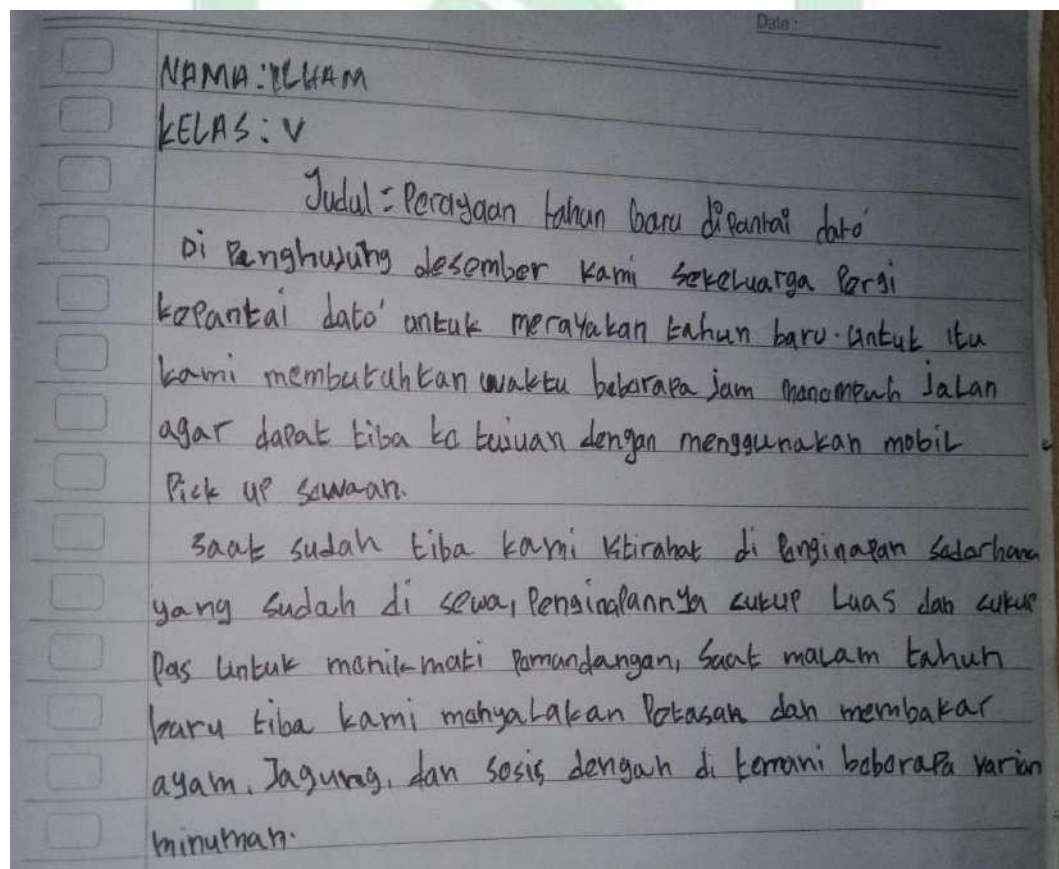 Date:
NAMA: ILHAM
KELAS: V
Judul = Perayaan tahun baru dipantai dato'
Di Penghujung desember kami sekeluarga Pergi
kepantai dato' untuk merayakan tahun baru. untuk itu
kami membutuhkan waktu beberapa jam menempuh jalan
agar dapat tiba ke tujuan dengan menggunakan mobil
Pick up sewaan.
saat sudah tiba kami istirahat di Penginapan sederhana
yang sudah di sewa, Penginapannya cukup Luas dan cukup
Pas untuk menikmati Pemandangan, saat malam tahun
baru tiba kami menyalakan Petasan dan membakar
ayam, Jagung, dan sosis dengan di temani beberapa varian
minuman.